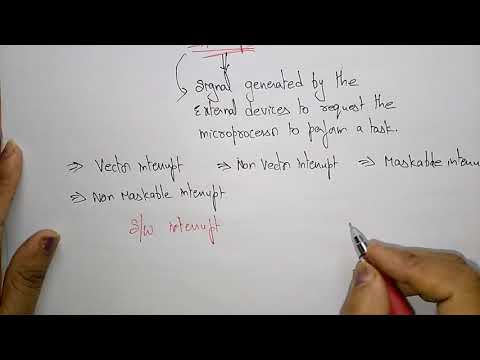 Signal generated by the
External devices to request the
microprocessor to perform a task.
⇒ Vector interrupt ⇒ Non Vector interrupt ⇒ Maskable interru
⇒ Non Maskable interrupt
S/W interrupt